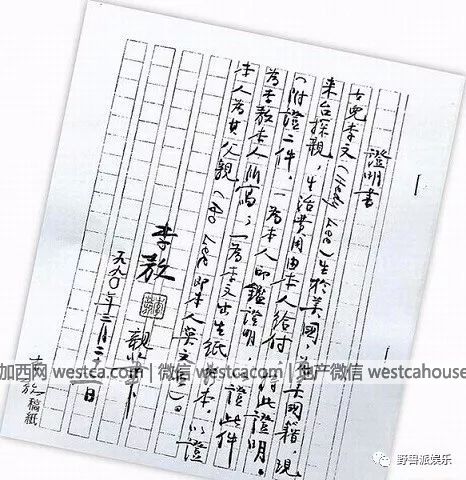 證明書
女兒李文(Hedy Lee)生於美國,為美國籍,現
來台探親,生活費用由本人給付,特此證明。
(附證二件,一為本人印鑑證明,證此件
為李敖本人所寫;一為李文出生紙影本,以證
本人為其父親(Ao Lee 即本人英文名)。
李敖 親筆
一九九〇年三月二十日
稿紙
加西网 westca.com | 加西网 westca.com | 地产微信 westcahouse
野兽派娱乐